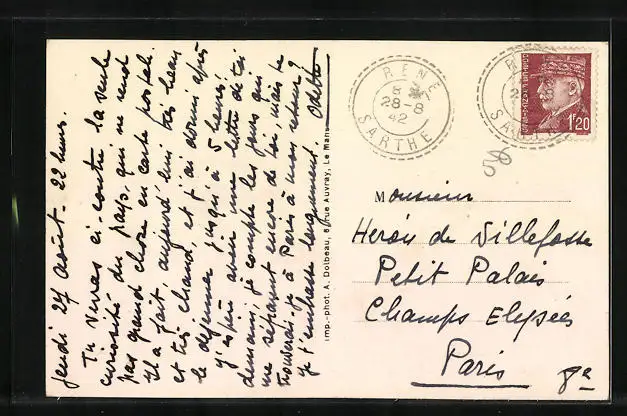 Jeudi 27 août. 22 heures.
Tu verras ci-contre la seule
curiosité du pays, qui ne rend
pas grand chose en carte postale.
Il a fait aujourd'hui très beau
et très chaud, et j'ai dormi après
le déjeuner jusqu'à 5 heures!
J'espère avoir une lettre de toi
demain, je compte les jours qui
me séparent encore de toi, mais te
trouverai-je à Paris à mon retour?
Je t'embrasse longuement. Odette
Imp.-phot. A. Dolbeau, 8, rue Auvray, Le Mans
RENÉ
28-8
42
SARTHE
1f20
Monsieur
Heron de Villefosse
Petit Palais
Champs Elysées
Paris 8e